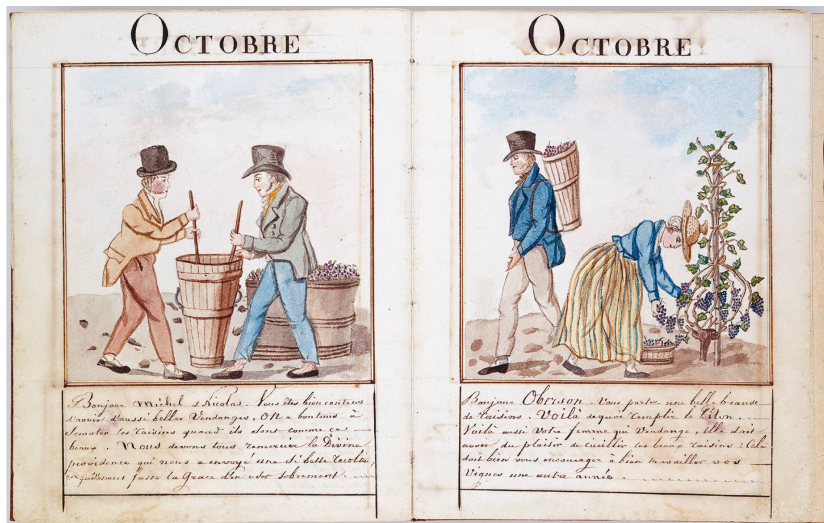 OCTOBRE
Bonjour Michel & Nicolas. Vous êtes bien contens
d'avoir d'aussi belles Vendanges. On a bon tems à
les raisins quand ils sont comme ça
beaux. Nous devons tous remercier la Divine
providence qui nous a envoyé une si belle recolte,
qu'elle nous fasse la Grace d'en user sobrement
OCTOBRE
Bonjour Oberson. Vous portez une belle brause
de raisins. Voilà dequoi remplir le
Voilà aussi votre femme qui Vendange, Elle doit
avoir du plaisir de cueillir ces beaux raisins : Cela
doit bien vous encourager à bien travailler vos
Vignes une autre année.